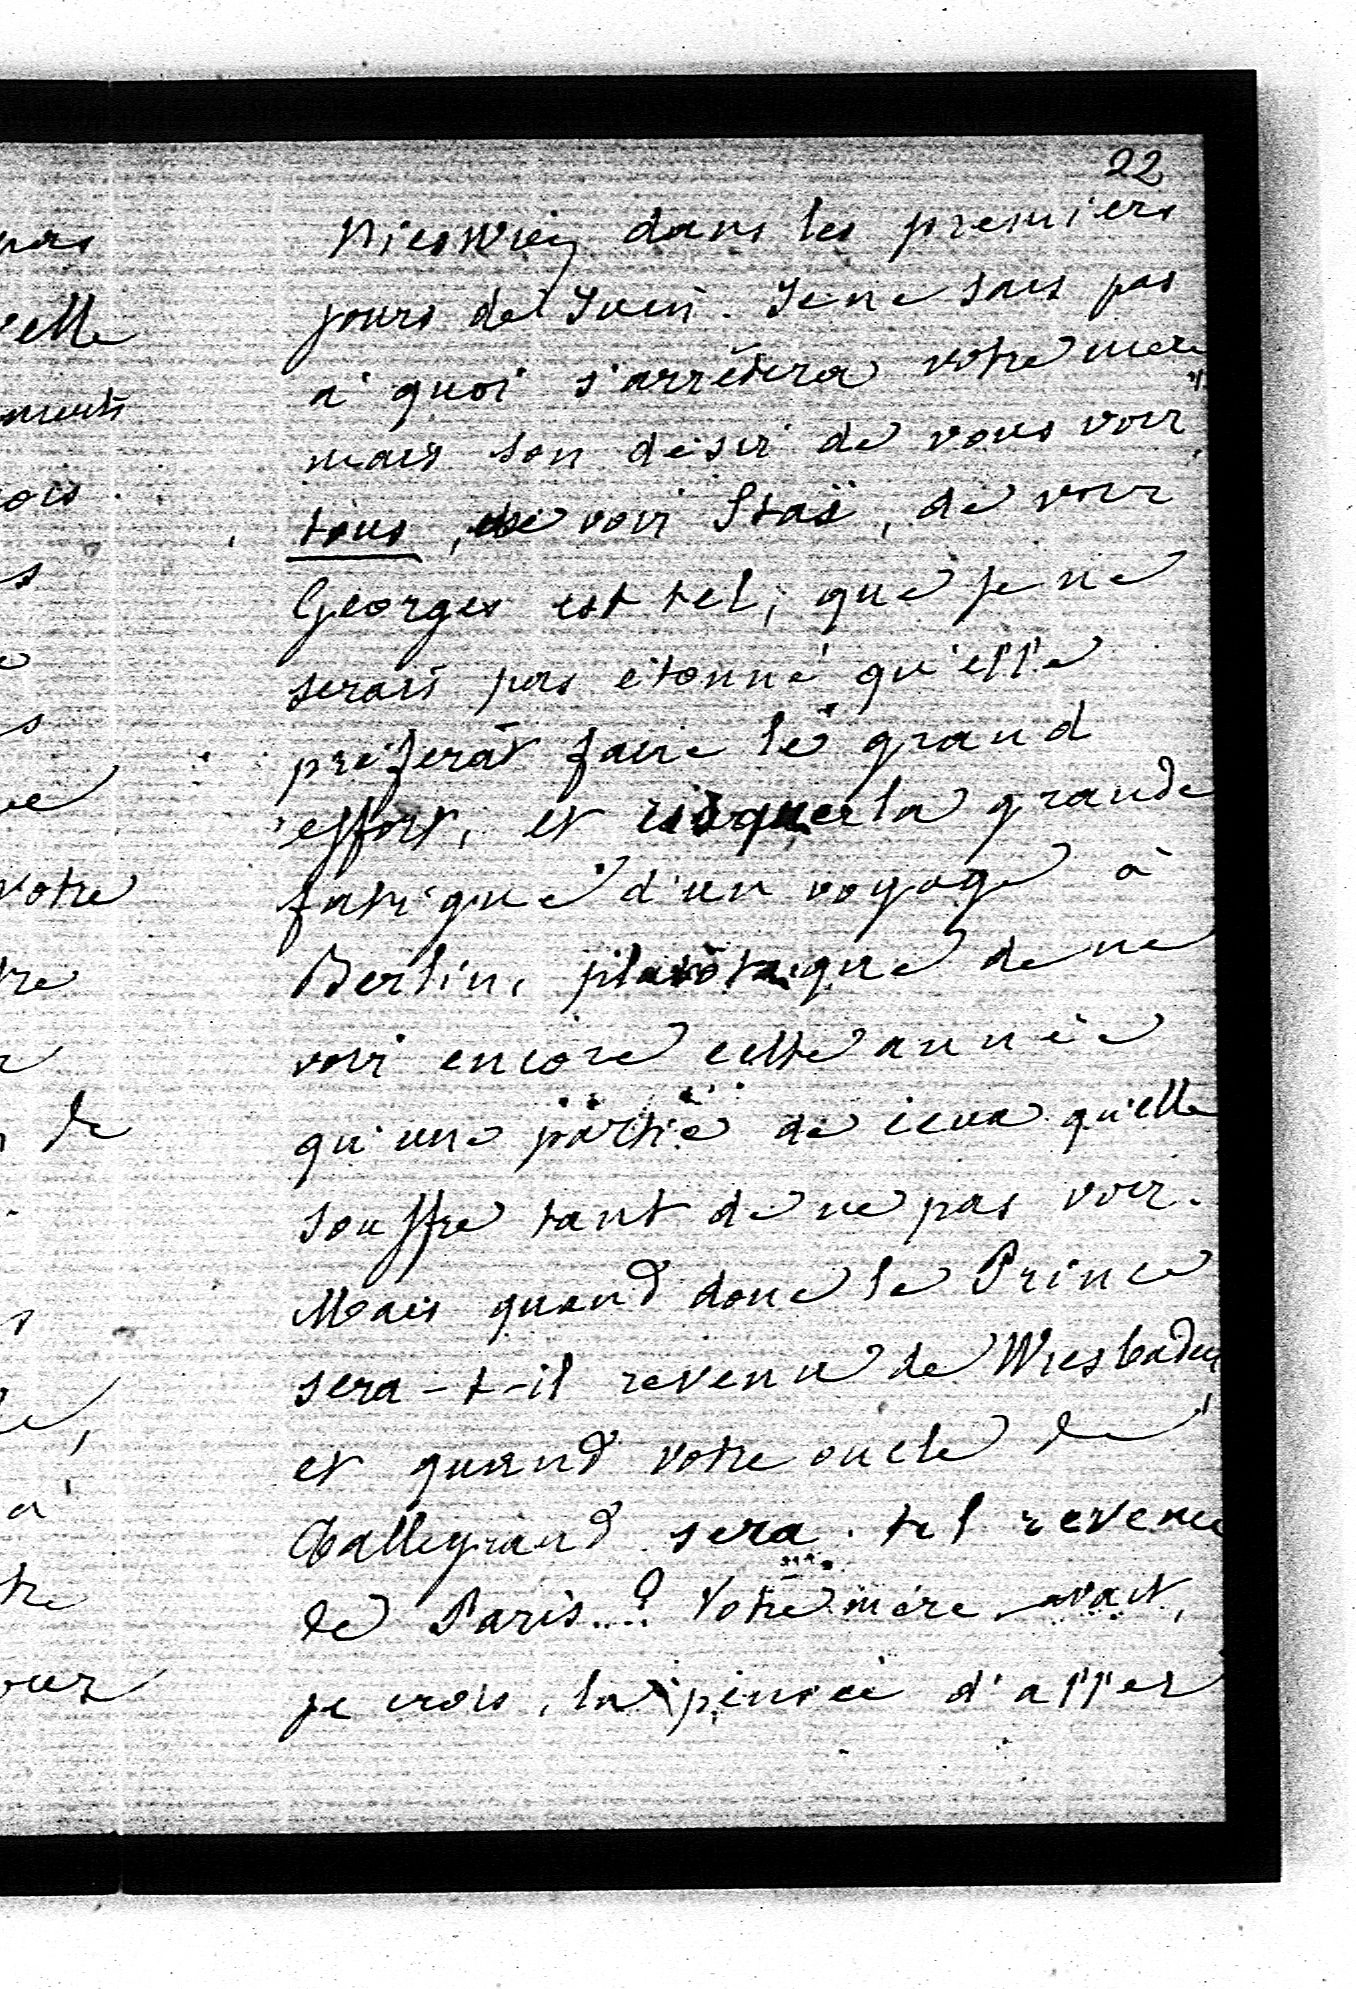 22
Nieswiez dans les premiers
jours de Juin. Je ne sais pas
à quoi s'arrêtera votre mère
mais son désir de vous voir
tous, de voir Staś, de voir
Georges est tel, que je ne
serais pas étonné qu'elle
préferât faire le grand
effort, et risquer la grande
fatigue d'un voyage à
Berlin, plutôt que de ne
voir encore cette année
qu'une partie de ceux qu'elle
souffre tant de ne pas voir.
Mais quand donc le Prince
sera-t-il revenu de Wiesbaden
et quand votre oncle de
Talleyrand sera-t-il revenu
de Paris..? Votre mère avait,
je crois, la pensée d'aller